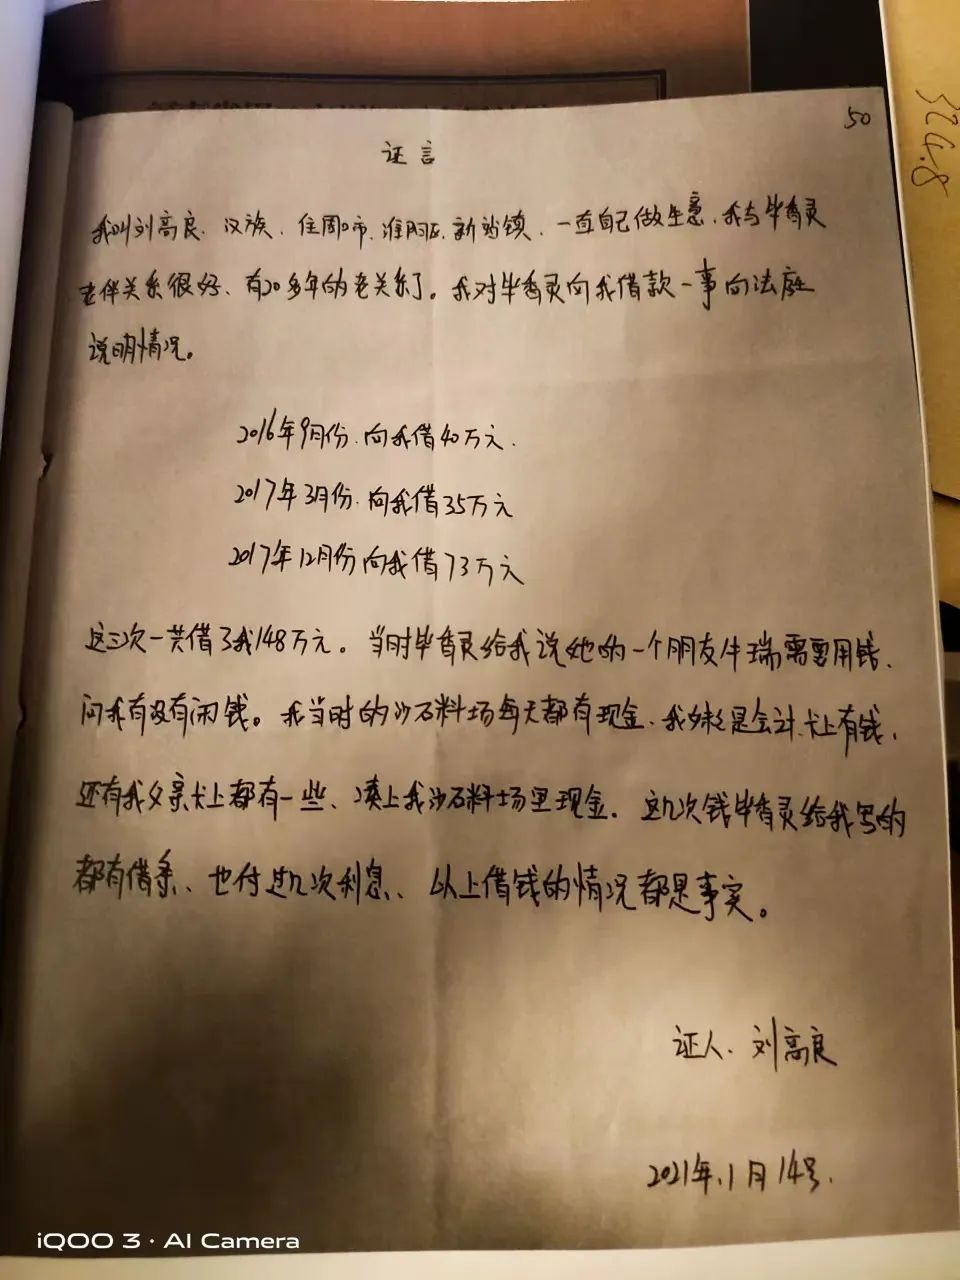 50
证言
我叫刘高良、汉族、住周口市、淮阳区、新站镇、一直自己做生意、我与毕香灵
老伴关系很好、有20多年的老关系了。我对毕香灵向我借款一事向法庭
说明情况。
2016年9月份.向我借40万元.
2017年3月份.向我借35万元
2017年12月份向我借73万元
这三次一共借了我148万元。当时毕香灵给我说她的一个朋友牛瑞需要用钱、
问我有没有闲钱。我当时的沙石料场每天都有现金、我妹是会计、卡上有钱、
还有我父亲卡上都有一些、凑上我沙石料场里现金. 这几次钱毕香灵给我写的
都有借条、也付过几次利息、以上借钱的情况都是事实。
证人、刘高良
2021年.1月14号.
524.8
iQOO 3 · AI Camera